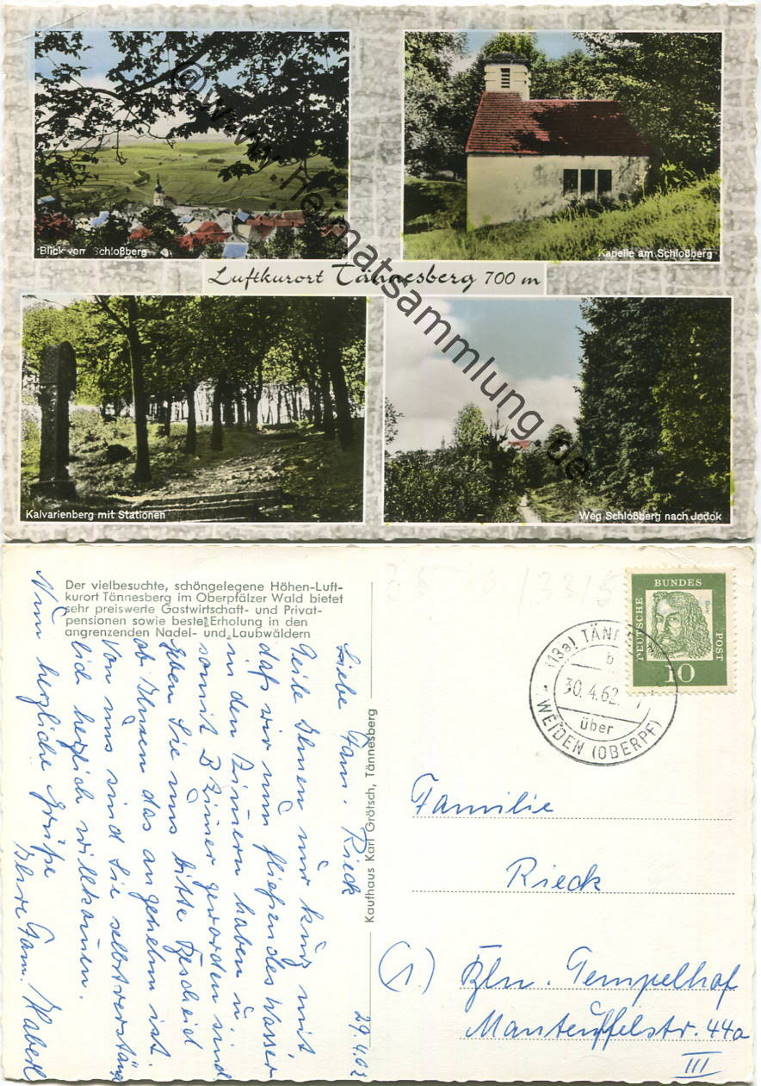 Blick vom Schloßberg
Kapelle am Schloßberg
Luftkurort Tännesberg 700 m
Kalvarienberg mit Stationen
Weg Schloßberg nach Jodok
© www.heimatsammlung.de
Der vielbesuchte, schöngelegene Höhen-Luft-
kurort Tännesberg im Oberpfälzer Wald bietet
sehr preiswerte Gastwirtschaft- und Privat-
pensionen sowie beste Erholung in den
angrenzenden Nadel- und Laubwäldern
29.4.62
Liebe Fam. Rieck
Teile Ihnen nur kurz mit,
daß wir nun fließendes Wasser
in den Zimern haben u.
somit Zimer geworden sind
Geben Sie uns bitte Bescheid
ob Ihnen das angenehm ist.
Von uns sind Sie selbstverständ
lich herzlich willkomen.
Nun herzliche Grüße
Ihre Fam.
Kaufhaus Karl Grötsch, Tännesberg
DEUTSCHE BUNDES POST
10
(13a) TÄNN
b
30.4.62
über
WEIDEN (OBERPF)
Familie
Rieck
(1) Bln. Tempelhof
Manteuffelstr. 44a
III